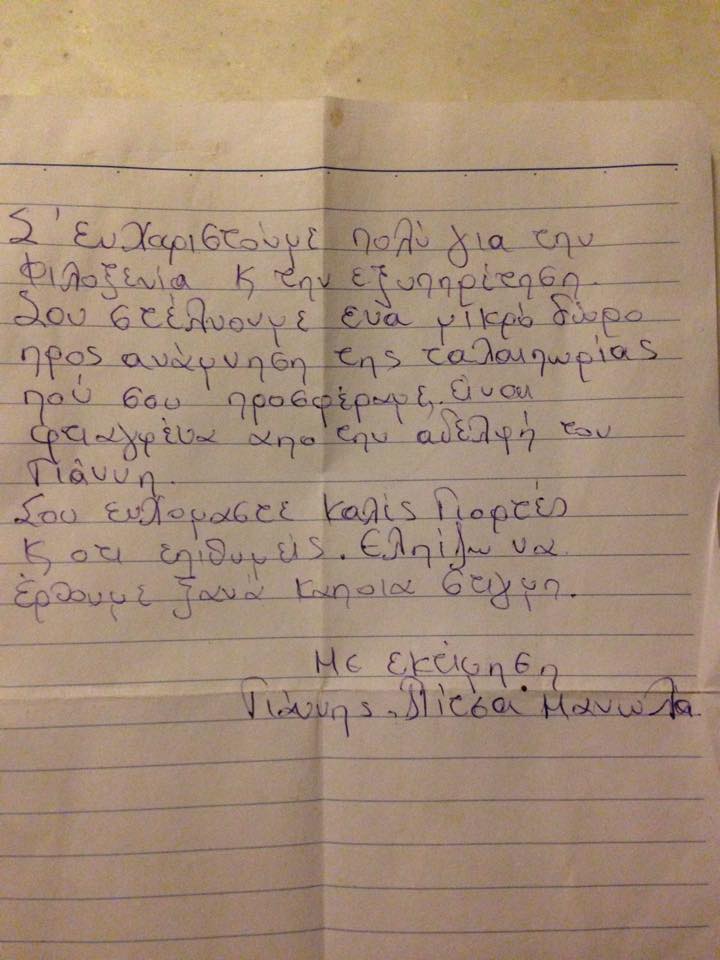 Σ' ευχαριστούμε πολύ για την
Φιλοξενία κ την εξυπηρίτηση.
Σου στέλνουμε ενα μικρό δώρο
προς ανάμνηση της ταλαιπωρίας
πού σου προσφέραμε. είναι
φτιαγμένα απο την αδελφή του
Γιάννη.
Σου ευχομαστε καλές Γιορτές
κ οτι επιθυμείς. Ελπίζω να
έρθουμε ξανά καποια στιγμη.
Με εκτίμηση
Γιάννης. Πίτσα Μανωλα